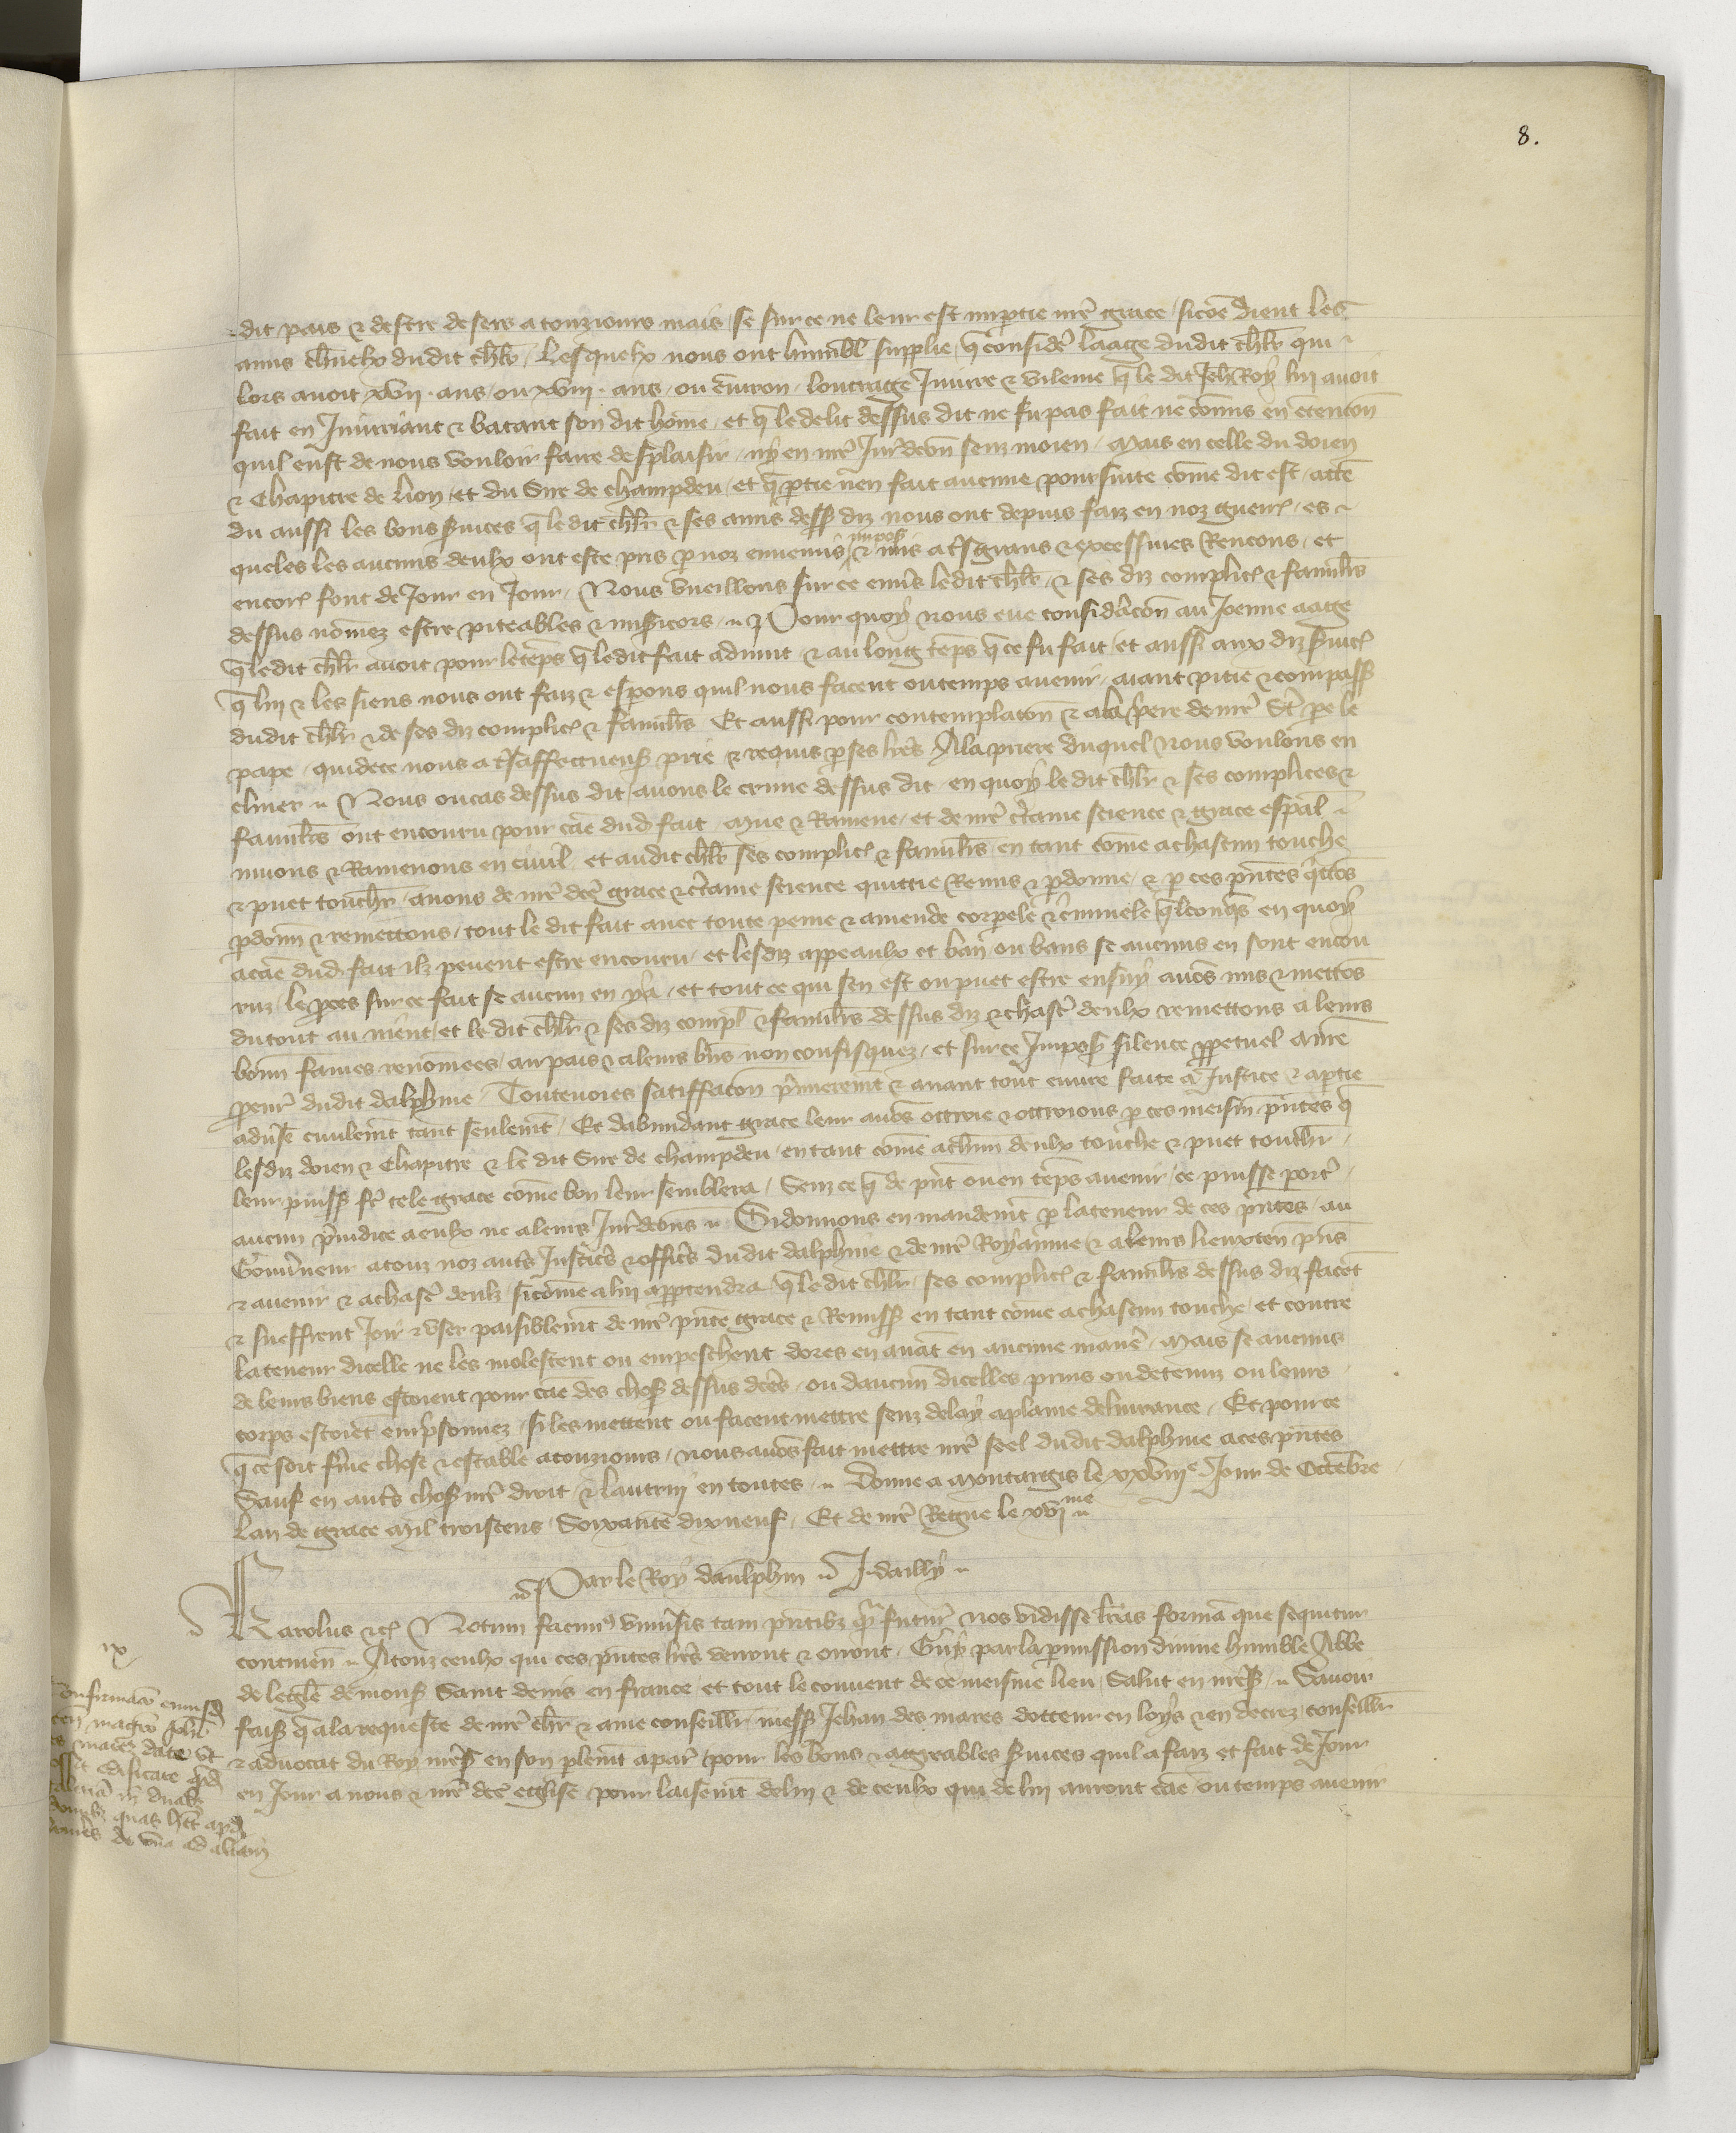 8.
dit pais & destre desers a touziours mais se sur ce ne leur est imptie nre grace sicōe dient les
amis chnelx dudit chlr Lesquelx nous ont humbl supplie q consider laage dudit chlr qui
lors avoit xvij. ans ou xviij. ans ou environ loutrage Iniure & vilenie q le dit Jeh Roy lui avoit
fait en Iniuriant & batant son dit hōme et q le delit dessus dit ne fu pas fait ne cōmis en entention
quil eust de nous vouloir faire desplaisir ny en nre Iurdcōn senz moien Mais en celle du doien
& Chapitre de lion et du Sire de champdeu et q ptie nen fait aucune poursuite cōme dit est atten
du aussi les bons svices q le dit chlr & ses amis dess diz nous ont depuis faiz en noz guerr es
queles les aucuns deulx ont este pris p noz ennemis & mis a tsgrans & excessives Rencons et
encor font de Jour en Jour Nous vueillons sur ce envs ledit chlr & ses diz complic & familrs
dessus nōmez estre piteables & misicors Pour quoy nous eue considacōn au Joenne aage
q ledit chlr avoit pour le teps q ledit fait advint & au long teps q ce fu fait et aussi aux diz svic
q lui & les siens nous ont faiz & espons quil nous facent ou temps avenir aiant pitie & compass
dudit chlr & de ses diz complic & familrs Et aussi pour contemplatōn & a la priere de nre St pe le
pape qui de ce nous a tsaffectueus prie & requis p ses lres A la priere duquel nous voulons en
cliner Nous ou cas dessus dit avons le crime dessus dit en quoy le dit chlr & ses complices &
familrs ont encouru pour cāe dud fait Mue & Ramene et de nre ctaine science & grace espal
muons & Ramenons en civil et audit chlr ses complic & familrs en tant cōme a chascun touche
& puet touchr avons de nre dce grace & ctaine science quittie Remis & pdonne & p ces pntes qttōs
pdonn & remettons tout le dit fait avec toute peine & amende corpele & cminele qlconqs en quoy
a cāe dud fait ilz pevent estre encouru et lesdiz appeaulx et ban ou bans se aucuns en sont encou
ruz le pces sur ce fait se aucun en y a et tout ce qui sen est ou puet estre ensuy avōs mis & mettōs
du tout au nient et le dit chlr & ses diz compl & familrs dessus diz & chasc deulx remettons a leurs
bonn fames renomees au pais & a leurs bns non confisquez et sur ce Impos silence ppetuel a nre
peur dudit dalphine Toutevoies satiffacōn pmieremt & avant tout euvre faite a Justice & a ptie
advse civilemt tant seulemt Et dabundant grace leur avōs ottroie & ottroions p ces meism pntes q
lesdiz doien & Chapitre & le dit Sire de champdeu en tant cōme a chun deulx touche & puet touchr
leur puiss fe tele grace cōme bon leur semblera Senz ce q de pnt ou en teps avenir ce puisse porter
aucun preiudice a eulx ne a leurs Jurdcōns Si donnons en mandemt p la teneur de ces pntes au
Gouvneur a touz noz auts Justiciers & officrs dudit dalphine & de nre Royaume & a leurs lieuxten pns
& avenir & a chasc deulx sicōme a lui apptendra q le dit chlr ses complic & familrs dessus diz facet
& sueffrent Joir & vser paisiblemt de nre pnte grace & Remiss en tant cōme a chascun touche et contre
la teneur dicelle ne les molestent ou empeschent dores en avāt en aucune manie Mais se aucuns
de leurs biens estoient pour cāe des chos dessus dces ou daucun dicelles prins ou detenuz ou leurs
corps estoiēt emprisonnez si les mettent ou facent mettre senz delay a plaine delivrance Et pour ce
q ce soit ferme chose & estable a touziours nous avōs fait mettre nre seel dudit dalphine a ces pntes
Sauf en auts chos nre droit & lautruy en toutes Donne a Montargis le xxviiie Jour de Octēbre
Lan de grace Mil troiscens Soixante dixneuf Et de nre Regne le xvime
Par le Roy daulphin J. dailly
Karolus &c Notum facim vnivsis tam pntibz q futur nos vidisse lras formā que sequitur
continen A touz ceulx qui ces pntes lres verront & orront Guy par la pmission divine humble Abbe
de leglē de mons Saint denis en france et tout le convent de ce meisme lieu Salut en nres Savoir
fais q a la requeste de nre chr & ame conseillr mess Jehan des mares docteur en loys & en decrez conseillr
& advocat du Roy nres en son plemt a par pour les bons & aggreables svices quil a faiz et fait de Jour
en Jour a nous & nre dce esglise pour laisemt de lui & de ceulx qui de lui auront cāe ou temps avenir
ix